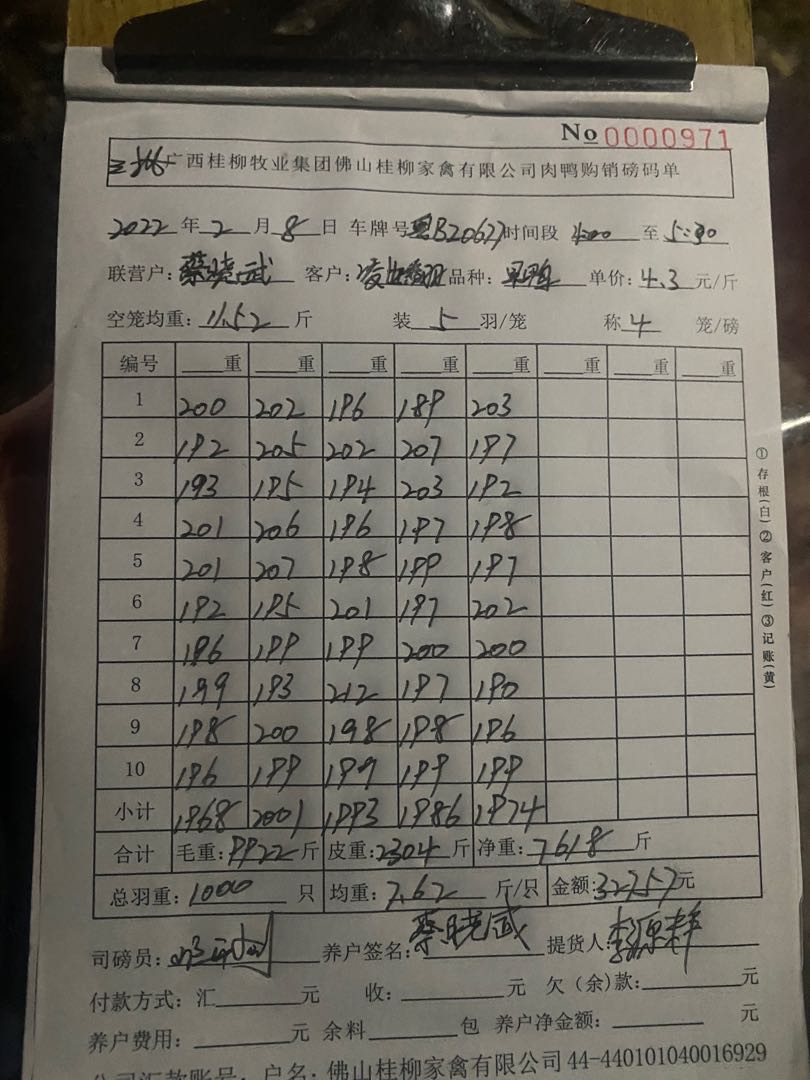 No 0000971
广西桂柳牧业集团佛山桂柳家禽有限公司肉鸭购销磅码单
2022 年 2 月 8 日 车牌号 粤B20627 时间段 4:00 至 5:30
联营户: 蔡晓武 客户: 品种: 单价: 4.3 元/斤
空笼均重: 11.52 斤 装 5 羽/笼 称 4 笼/磅
编号 重 重 重 重 重 重 重 重
1 200 202 196 189 203
2 192 205 202 207 197
3 193 195 194 203 192
4 201 206 196 197 198
5 201 207 198 199 197
6 192 195 201 197 202
7 196 199 199 200 200
8 199 193 212 197 190
9 198 200 198 198 196
10 196 199 197 199 199
小计 1968 2001 1993 1986 1974
合计 毛重: 9922 斤 皮重: 2304 斤 净重: 7618 斤
总羽重: 1000 只 均重: 7.62 斤/只 金额: 32757 元
司磅员: 养户签名: 蔡晓武 提货人:
付款方式: 汇 元 收: 元 欠(余)款: 元
养户费用: 元 余料 包 养户净金额: 元
公司汇款账号: 户名: 佛山桂柳家禽有限公司 44-440101040016929
①存根(白)②客户(红)③记账(黄)